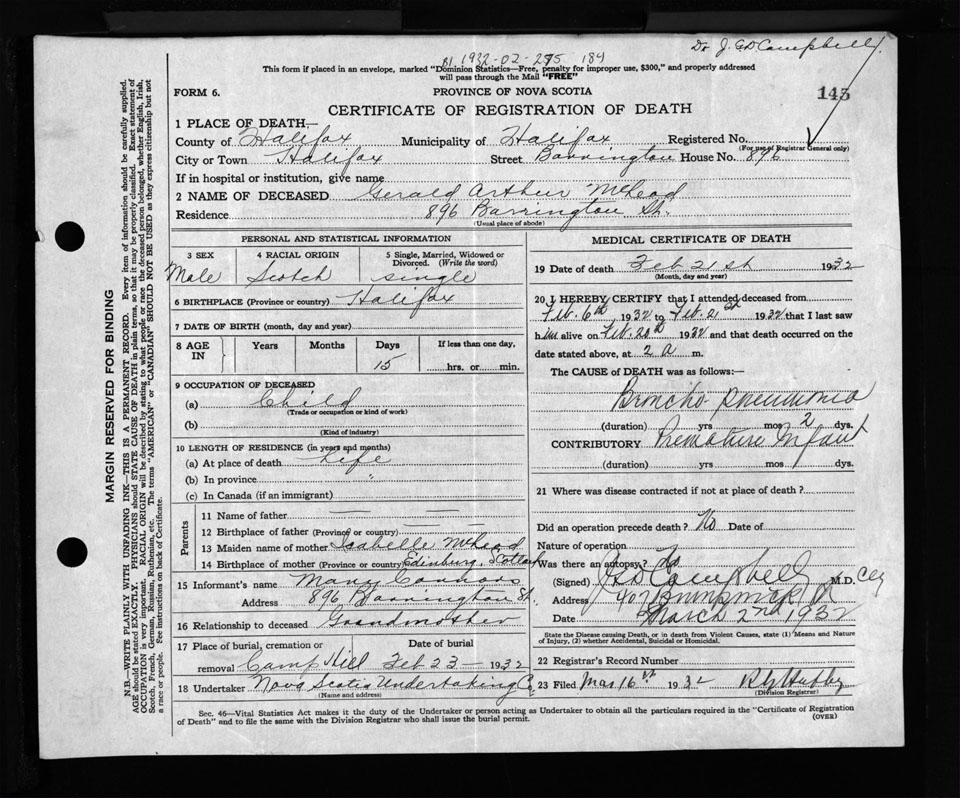 Dr J. G D Campbell
1932-02-275 184
This form if placed in an envelope, marked "Dominion Statistics—Free, penalty for improper use, $300," and properly addressed
will pass through the Mail "FREE"
FORM 6.
PROVINCE OF NOVA SCOTIA
145
CERTIFICATE OF REGISTRATION OF DEATH
1 PLACE OF DEATH—
County of Halifax Municipality of Halifax Registered No.
(For use of Registrar General only)
City or Town Halifax Street Barrington House No. 896
If in hospital or institution, give name
2 NAME OF DECEASED Gerald Arthur McLeod
Residence 896 Barrington St.
(Usual place of abode)
PERSONAL AND STATISTICAL INFORMATION
3 SEX 4 RACIAL ORIGIN 5 Single, Married, Widowed or
Divorced. (Write the word)
Male Scotch single
6 BIRTHPLACE (Province or country) Halifax
7 DATE OF BIRTH (month, day and year)
8 AGE IN Years Months Days If less than one day,
15 hrs. or min.
9 OCCUPATION OF DECEASED
(a) Child
(Trade or occupation or kind of work)
(b)
(Kind of industry)
10 LENGTH OF RESIDENCE (in years and months)
(a) At place of death Life
(b) In province "
(c) In Canada (if an immigrant)
Parents
11 Name of father — —
12 Birthplace of father (Province or country) — —
13 Maiden name of mother Isabelle McLeod
14 Birthplace of mother (Province or country) Edinburg, Scotland
15 Informant's name Mary Connors
Address 896 Barrington St.
16 Relationship to deceased Grandmother
17 Place of burial, cremation or Date of burial
removal Camp Hill Feb 23 — 1932
18 Undertaker Nova Scotia Undertaking Co
(Name and address)
MEDICAL CERTIFICATE OF DEATH
19 Date of death Feb 21st 1932
(Month, day and year)
20 I HEREBY CERTIFY that I attended deceased from
Feb. 6th 1932 to Feb. 21st 1932 that I last saw
him alive on Feb. 20th 1932 and that death occurred on the
date stated above, at 2 a m.
The CAUSE of DEATH was as follows:—
Broncho-pneumonia
(duration) yrs mos 2 dys.
CONTRIBUTORY Premature Infant
(duration) yrs mos dys.
21 Where was disease contracted if not at place of death?
Did an operation precede death? No Date of
Nature of operation
Was there an autopsy? No
(Signed) Campbell M.D.
Address 407 Brunswick St
Date March 2nd 1932
State the Disease causing Death, or in death from Violent Causes, state (1) Means and Nature
of Injury, (2) whether Accidental, Suicidal or Homicidal.
22 Registrar's Record Number
23 Filed Mar 16th 1932
(Division Registrar)
Sec. 46—Vital Statistics Act makes it the duty of the Undertaker or person acting as Undertaker to obtain all the particulars required in the "Certificate of Registration
of Death" and to file the same with the Division Registrar who shall issue the burial permit.
(OVER)
MARGIN RESERVED FOR BINDING
N.B.—WRITE PLAINLY WITH UNFADING INK—THIS IS A PERMANENT RECORD. Every item of information should be carefully supplied.
AGE should be stated EXACTLY. PHYSICIANS should STATE CAUSE OF DEATH in plain terms, so that it may be properly classified. Exact statement of
OCCUPATION is very important. RACIAL ORIGIN will be described by stating to what people or race the deceased person belonged, whether English, Irish,
Scotch, French, German, Russian, Ruthenian, etc. The terms "AMERICAN" or "CANADIAN" SHOULD NOT BE USED as they express citizenship but not
a race or people. See instructions on back of Certificate.